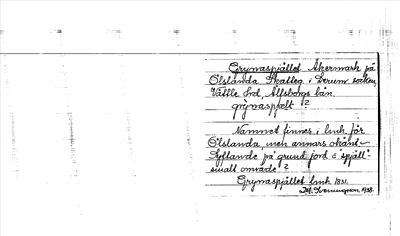 Grynaspjället Åkermark på
Olslanda Skatteg. i Lerum socken,
Vättle hd, Älfsborgs län.
grynaspjælt ?
Namnet finnes i lmh för
Olslanda, men annars okänt
Syftande på grund jord o "spjäll"
smalt område ?
Grynaspjället lmh 18